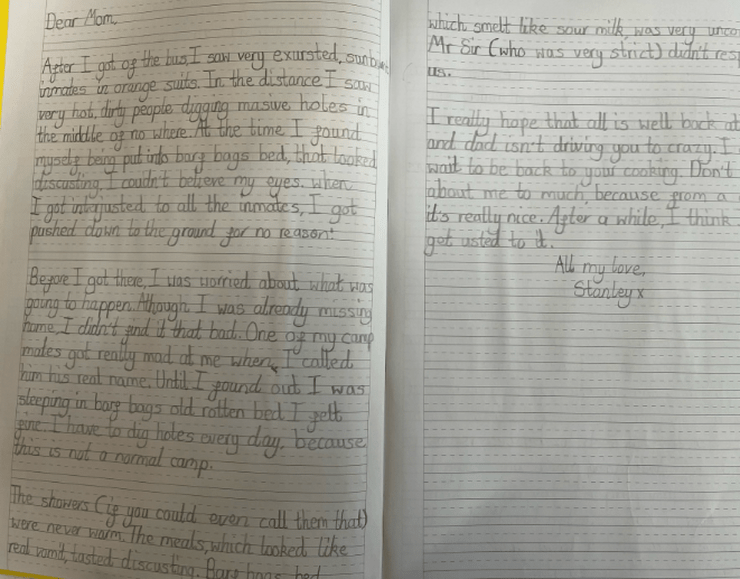 Dear Mom,
After I got of the bus, I saw very exursted, sunburnt
inmates in orange suits. In the distance I saw
very hot, dirty people digging masive holes in
the middle of no where. At the time I found
myself being put into barf bags bed, that looked
discusting, I couldn't believe my eyes. When
I got intajusted to all the inmates, I got
pushed down to the ground for no reason!
Before I got there, I was worried about what was
going to happen. Although I was already missing
home, I didn't find it that bad. One of my camp
mates got really mad at me when, I called
him his real name. Until I found out I was
sleeping in barf bags old rotten bed I felt
fine. I have to dig holes every day, because
this is not a normal camp.
The showers (if you could even call them that)
were never warm. The meals, which looked like
real vomit, tasted discusting. Barf bags bed
which smelt like sour milk, was very
Mr Sir (who was very strict) didn't
us.
I really hope that all is well back at
and dad isn't driving you to crazy. I
wait to be back to your cooking. Don't
about me to much, because from a
it's really nice. After a while, I think
get usted to it.
All my love,
Stanley x